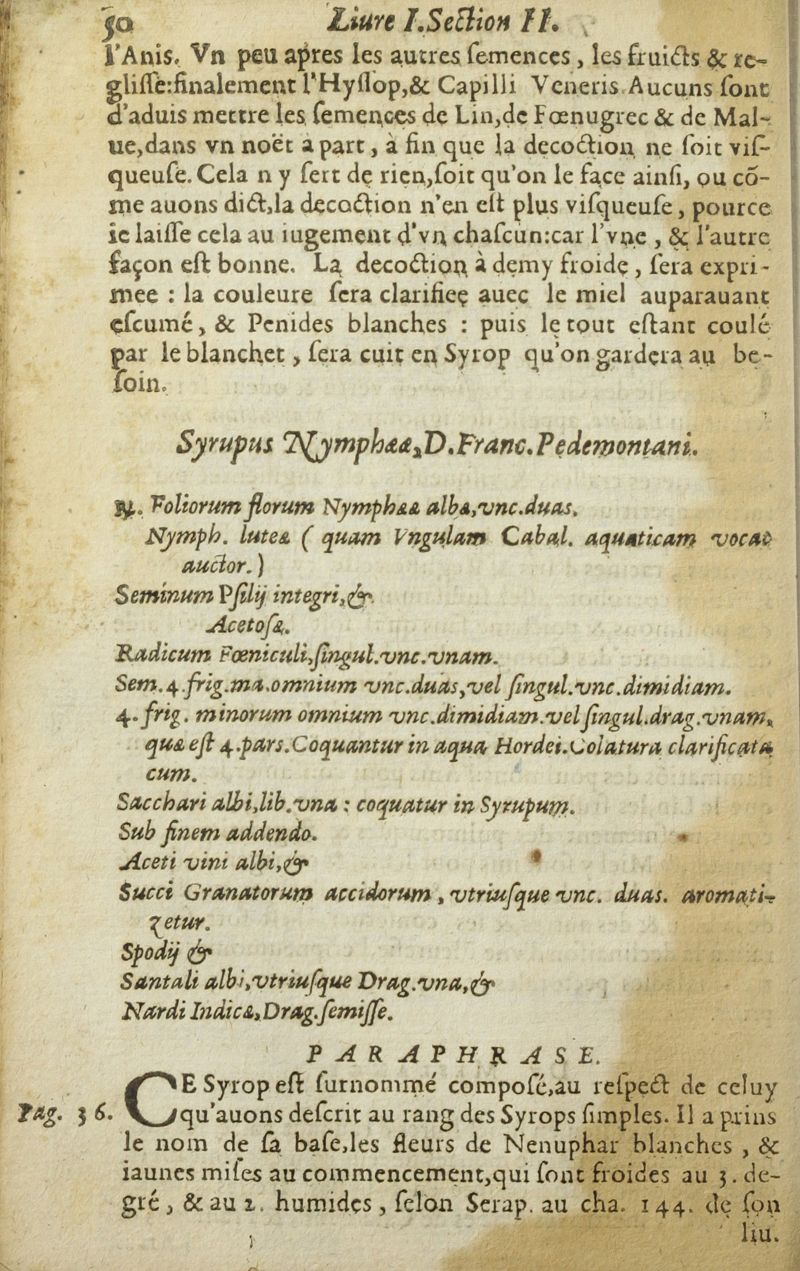 50 Liure I.Section II.
l'Anis. Vn peu apres les autres semences, les fruicts & re-
glisse:finalement l'Hyssop,& Capilli Veneris. Aucuns sont
d'aduis mettre les semences de Lin,de Fœnugrec & de Mal-
ue,dans vn noët a part, à fin que la decoction ne soit vis-
queuse. Cela n y sert de rien,soit qu'on le face ainsi, ou cō-
me auons dict,la decoction n'en est plus visqueuse, pource
ie laisse cela au iugement d'vn chascun:car l'vne, & l'autre
façon est bonne. La decoction à demy froide, sera expri-
mee : la couleure sera clarifiee auec le miel auparauant
escumé, & Penides blanches : puis le tout estant coulé
par le blanchet, sera cuit en Syrop qu'on gardera au be-
soin.
Syrupus Nymphææ,D.Franc.Pedemontani.
℞. Foliorum florum Nymphææ albæ,vnc.duas.
Nymph. luteæ ( quam Vngulam Cabal. aquaticam vocat
auctor.)
Seminum Psilij integri,&
Acetosæ.
Radicum Fœniculi,singul.vnc.vnam.
Sem.4.frig.ma.omnium vnc.duas,vel singul.vnc.dimidiam.
4.frig. minorum omnium vnc.dimidiam.vel singul.drag.vnam,
quæ est 4.pars.Coquantur in aqua Hordei.Colatura clarificata
cum.
Sacchari albi,lib.vna : coquatur in Syrupum.
Sub finem addendo.
Aceti vini albi,&
Succi Granatorum accidorum, vtriusque vnc. duas. aromati-
zetur.
Spodij &
Santali albi,vtriusque Drag.vna,&
Nardi Indicæ,Drag.semisse.
PARAPHRASE.
CE Syrop est surnommé composé,au respect de celuy
Pag. 36. qu'auons descrit au rang des Syrops simples. Il a prins
le nom de sa base,les fleurs de Nenuphar blanches, &
iaunes mises au commencement,qui sont froides au 3. de-
gré, & au 2. humides, selon Serap. au cha. 144. de son
liu.